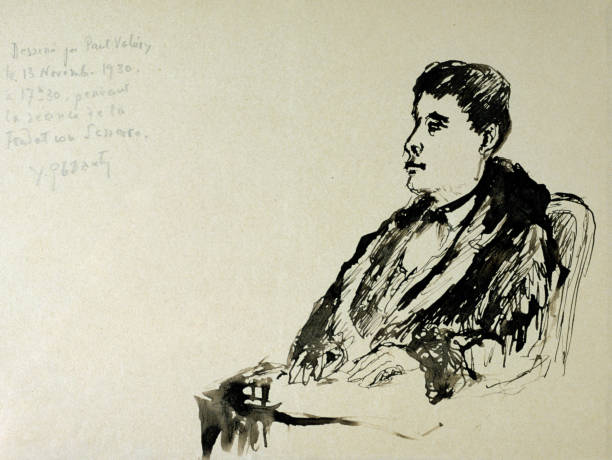 Dessiné par Paul Valéry
le 13 Novemb. 1930.
à 17h30, pendant
la séance de la
Fondation